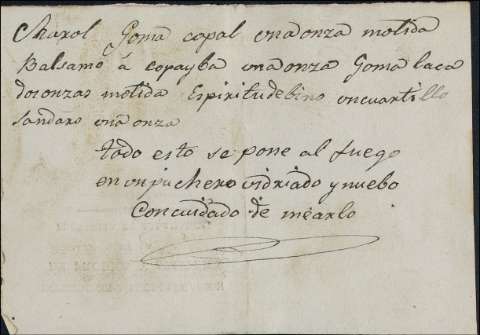 Charol Goma copal una onza molida
Balsamo á copayba una onza Goma laca
dos onzas molida Espiritu debino un cuartillo
Sandaro una onza
todo esto se pone al fuego
en un puchero vidriado y nuebo
Concuidado de mearlo